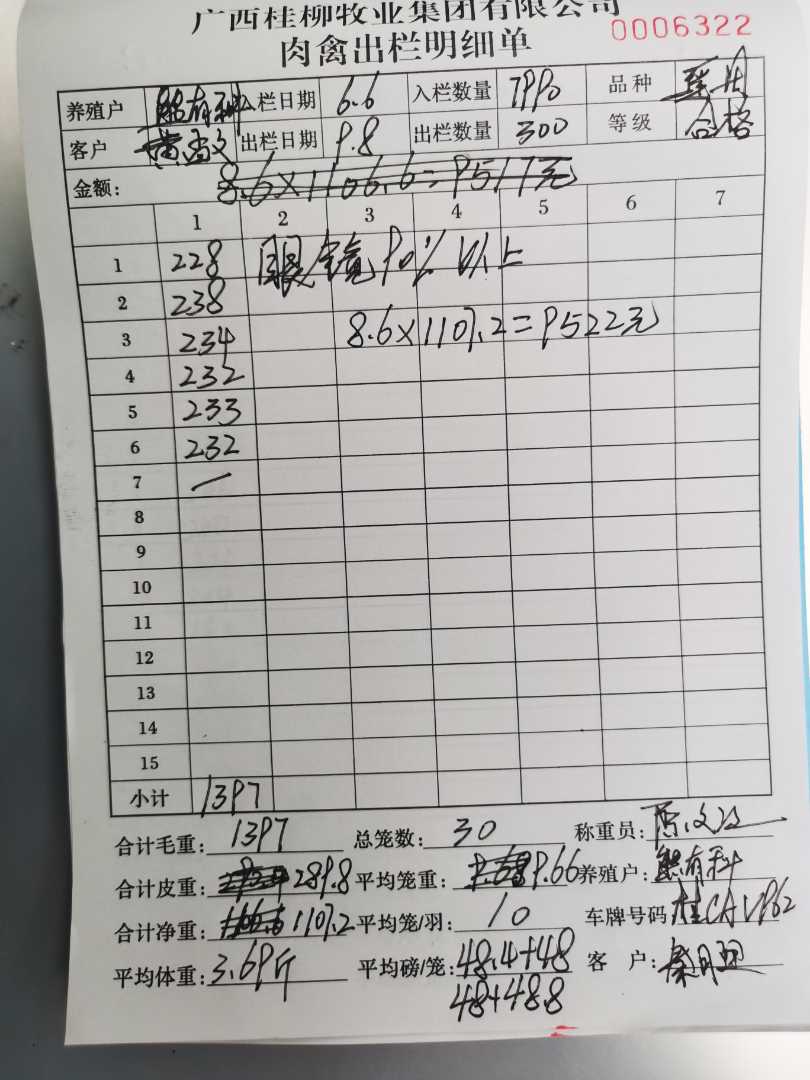 广西桂柳牧业集团有限公司
肉禽出栏明细单
0006322
养殖户 熊有科 入栏日期 6.6 入栏数量 7990 品种
客户 出栏日期 9.8 出栏数量 300 等级 合格
金额: 8.6×1106.6=9517元
1 2 3 4 5 6 7
1 228 眼镜90%以上
2 238
3 234 8.6×1107.2=9522元
4 232
5 233
6 232
7 —
8
9
10
11
12
13
14
15
小计 1397
合计毛重: 1397 总笼数: 30 称重员:
合计皮重: 289.8 平均笼重: 9.68 9.66 养殖户: 熊有科
合计净重: 1106.6 1107.2 平均笼/羽: 10 车牌号码 桂CAV962
平均体重: 3.69斤 平均磅/笼: 48.4+48 客 户:
48+48.8